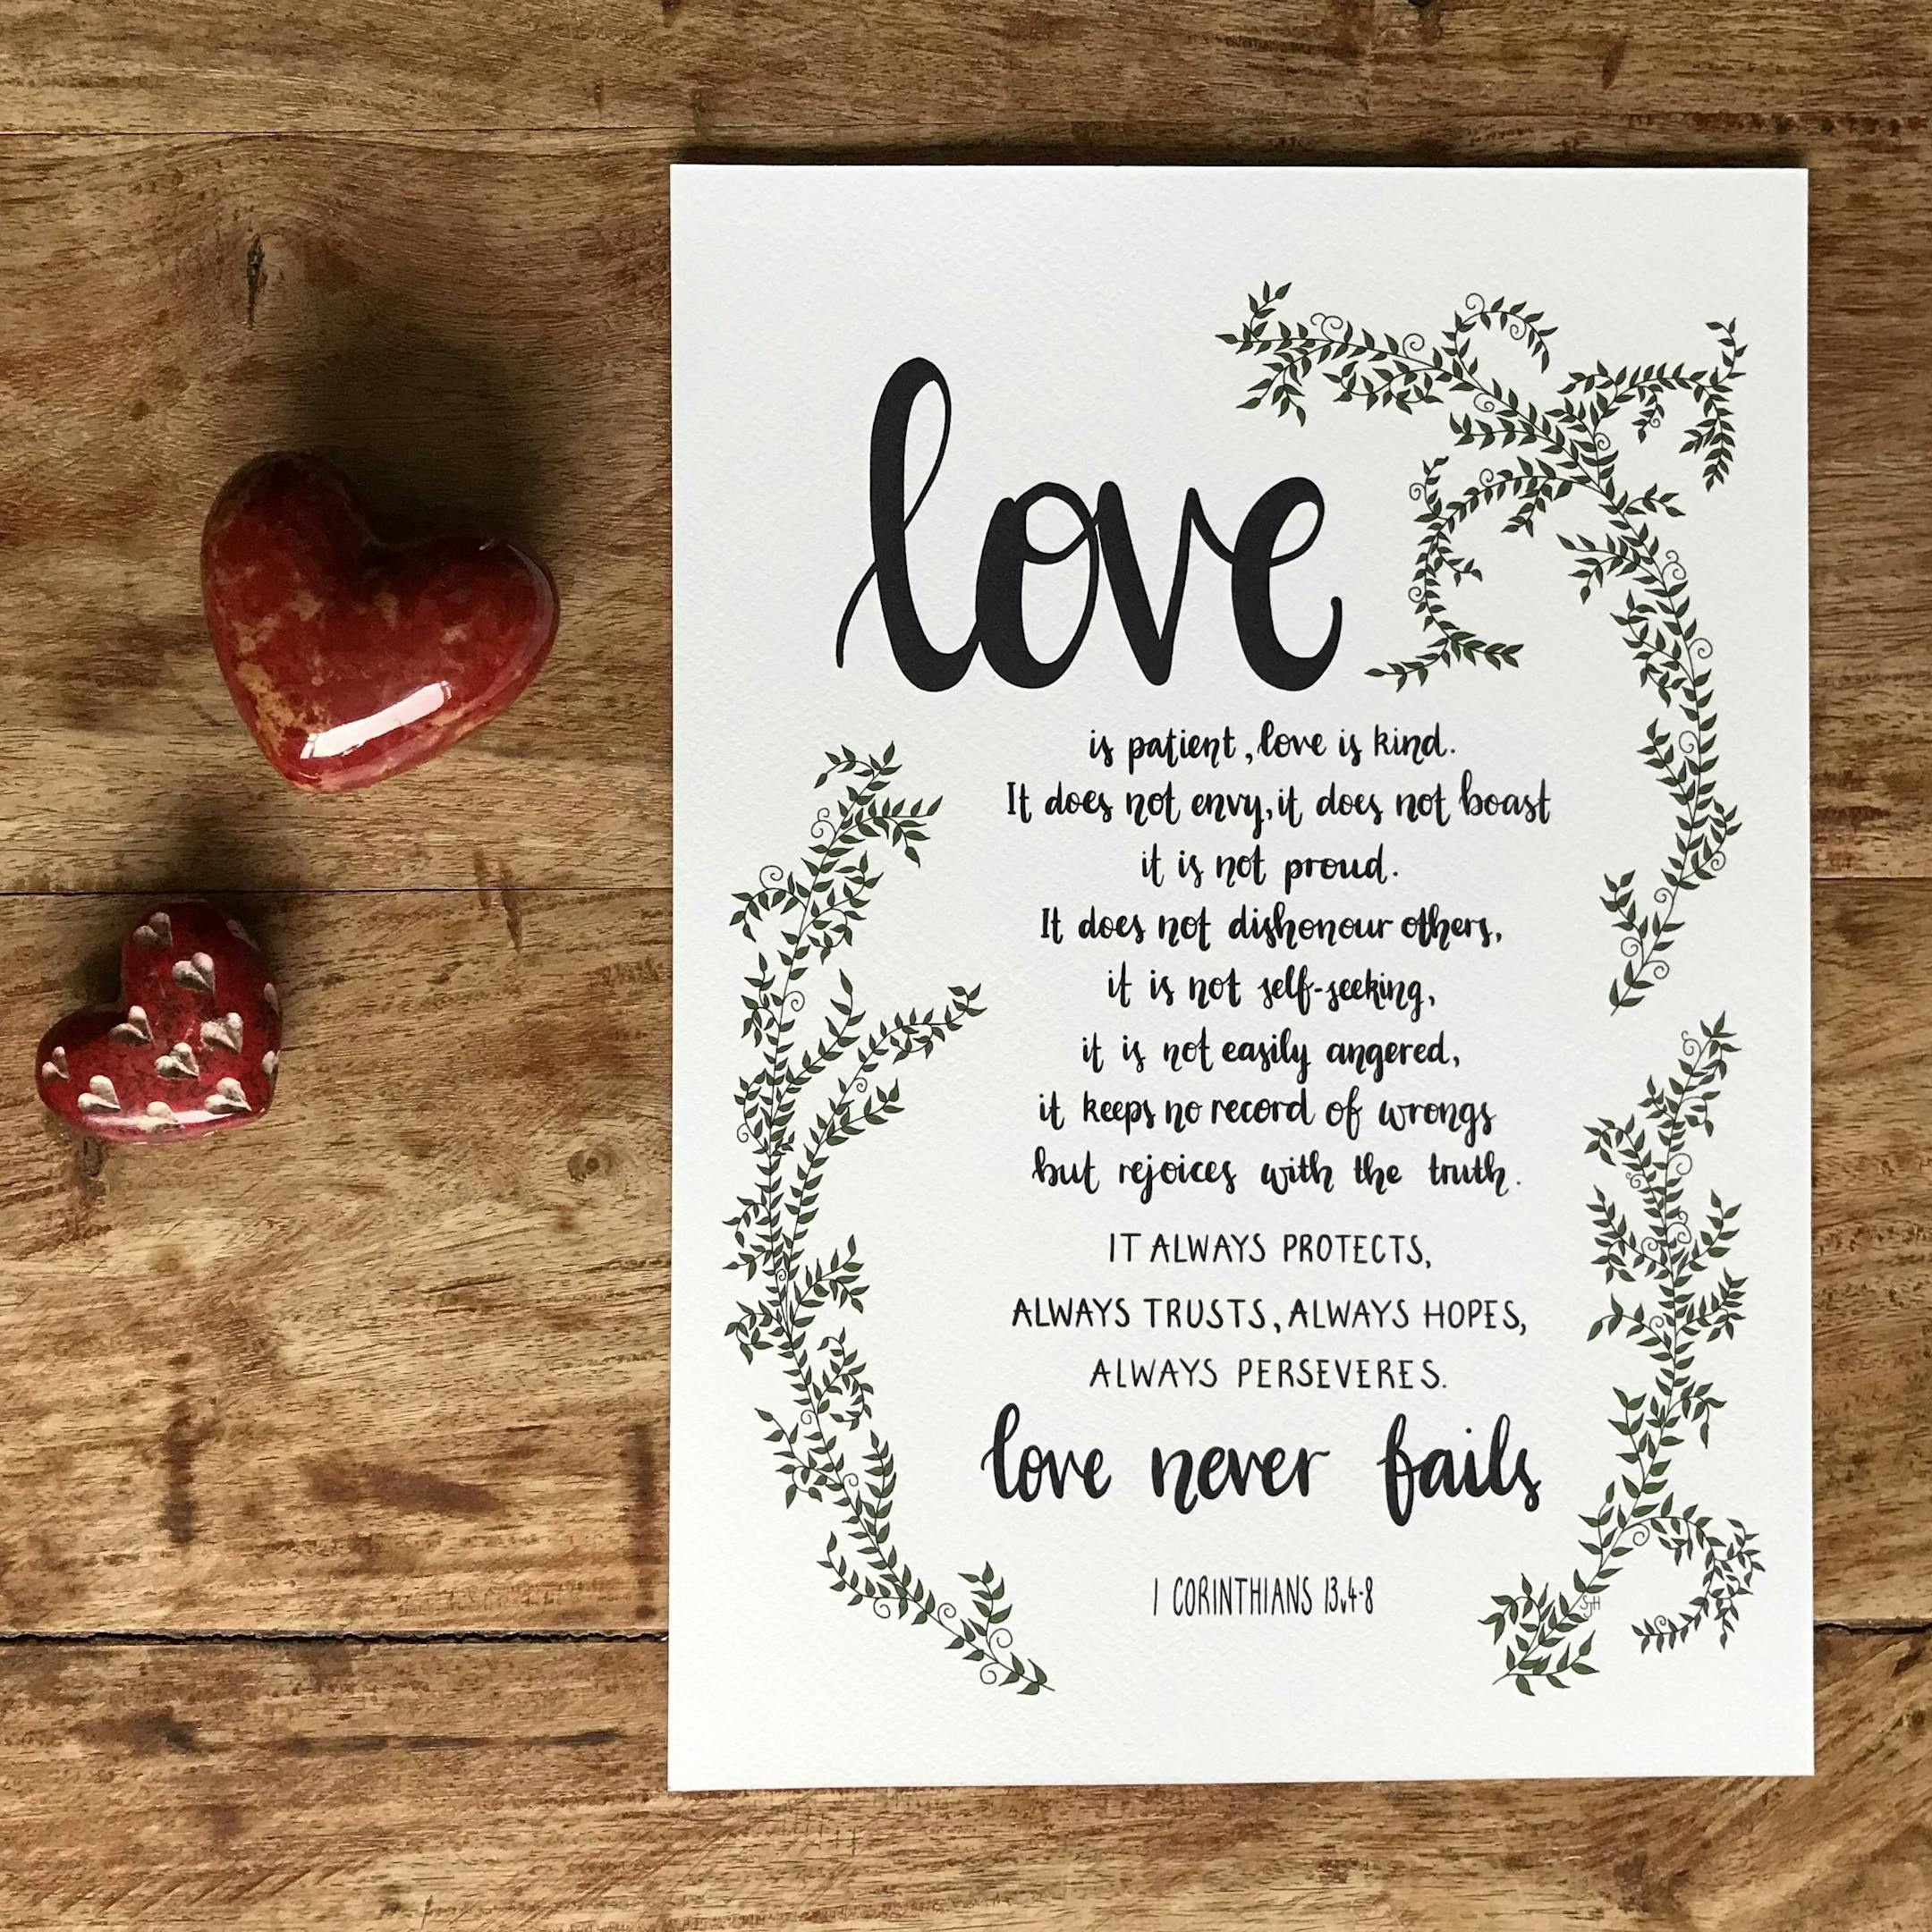 love
is patient, love is kind.
It does not envy, it does not boast
it is not proud.
It does not dishonour others,
it is not self-seeking,
it is not easily angered,
it keeps no record of wrongs
but rejoices with the truth.
IT ALWAYS PROTECTS,
ALWAYS TRUSTS, ALWAYS HOPES,
ALWAYS PERSEVERES.
love never fails
1 CORINTHIANS 13v4-8
SJH